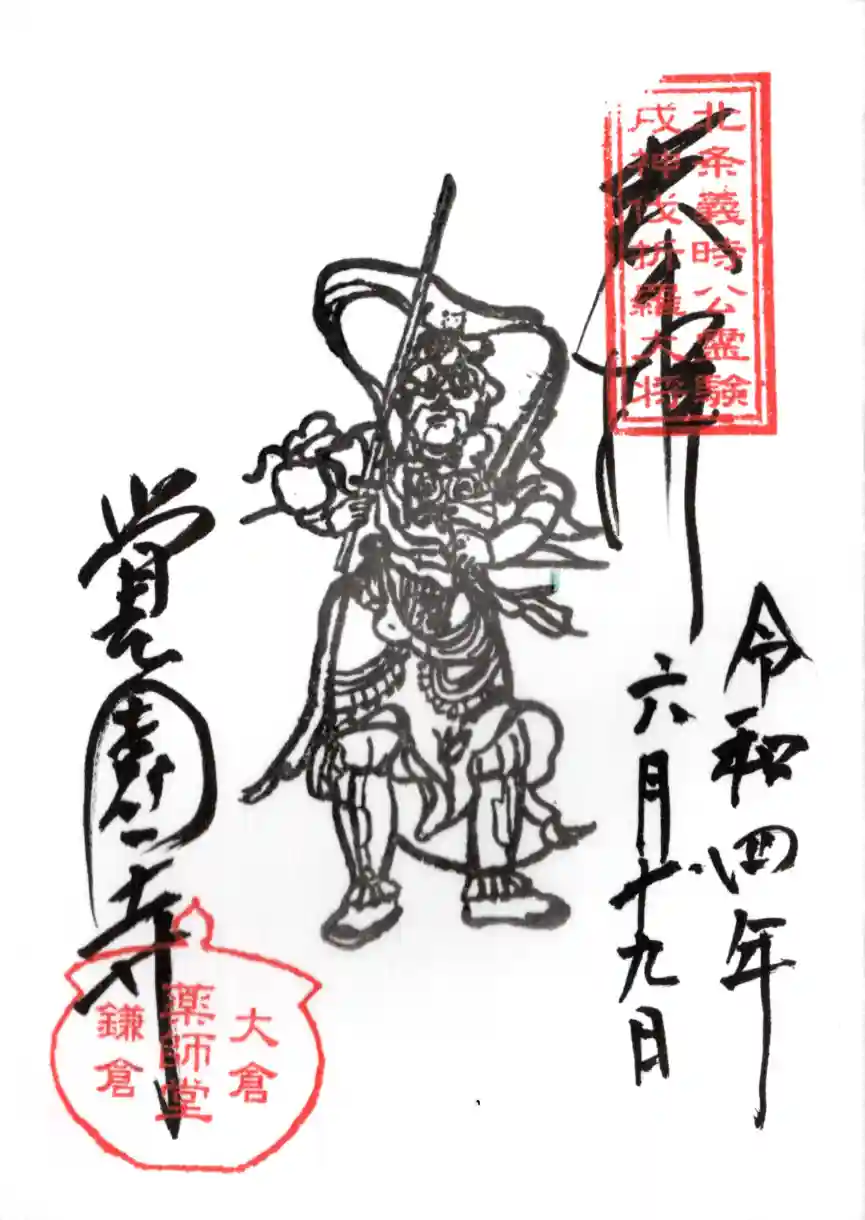 奉拝
北条義時公霊験
戌神伐折羅大将
令和四年
六月十九日
覚園寺
大倉
薬師堂
鎌倉